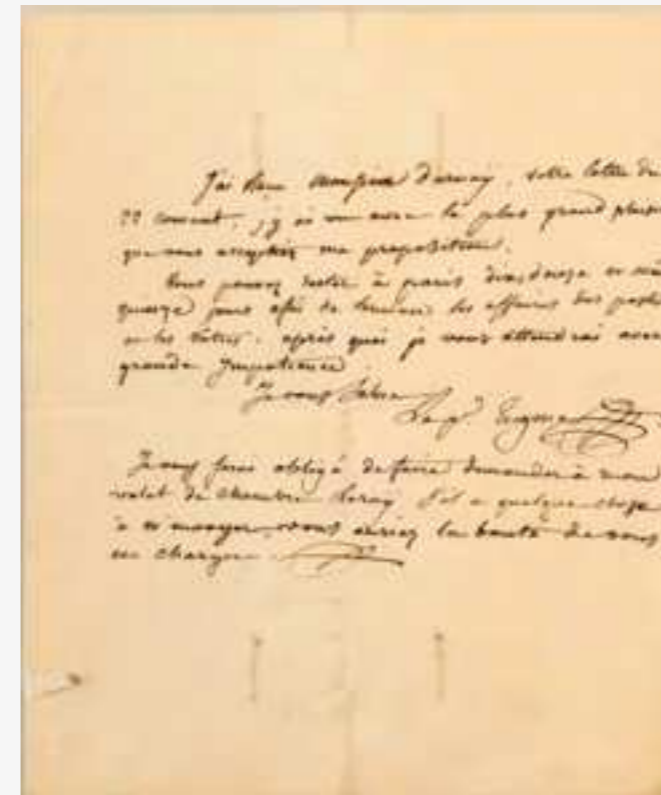 J'ai reçu monsieur Darnay, votre lettre du
22 courant, j'y ai vu avec le plus grand plaisir
que vous acceptiez ma proposition.
Vous pouvez rester à paris dix, douze et même
quinze jours afin de terminer les affaires des postes
et les vôtres. après quoi je vous attendrai avec
grande Impatience.
Je vous salue
Eugène
Je vous serai obligé de faire demander à mon
valet de chambre Leroy s'il a quelque chose
à m'envoyer. vous auriez la bonté de vous
en charger.